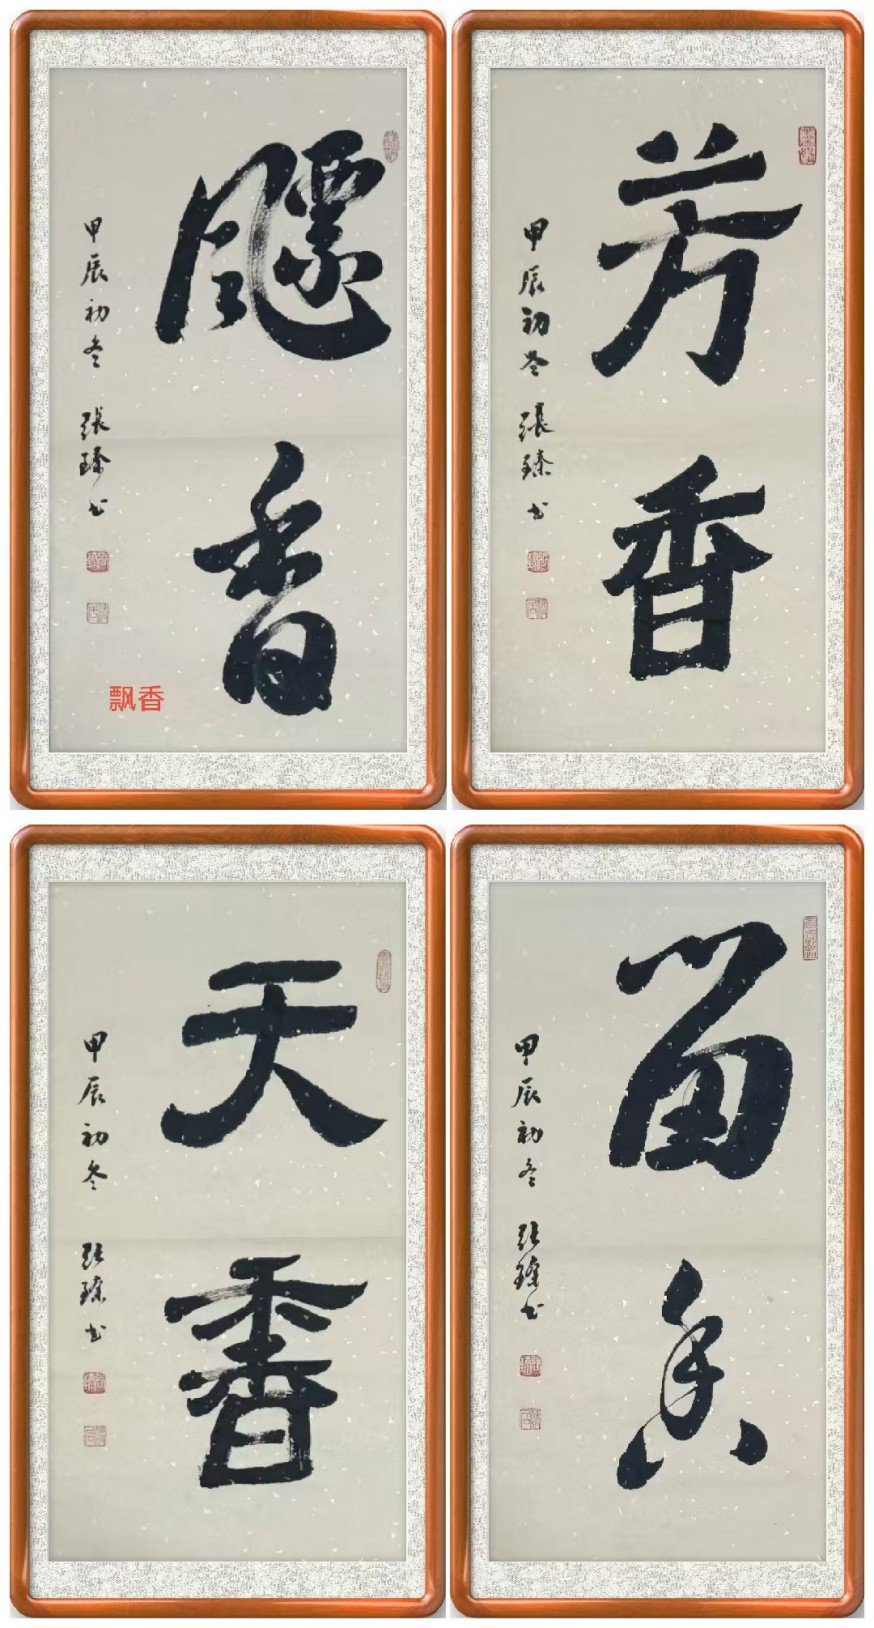 飃香
甲辰初冬 張臻书
飘香
芳香
甲辰初冬 張臻书
天香
甲辰初冬 张臻书
留香
甲辰初冬 张臻书